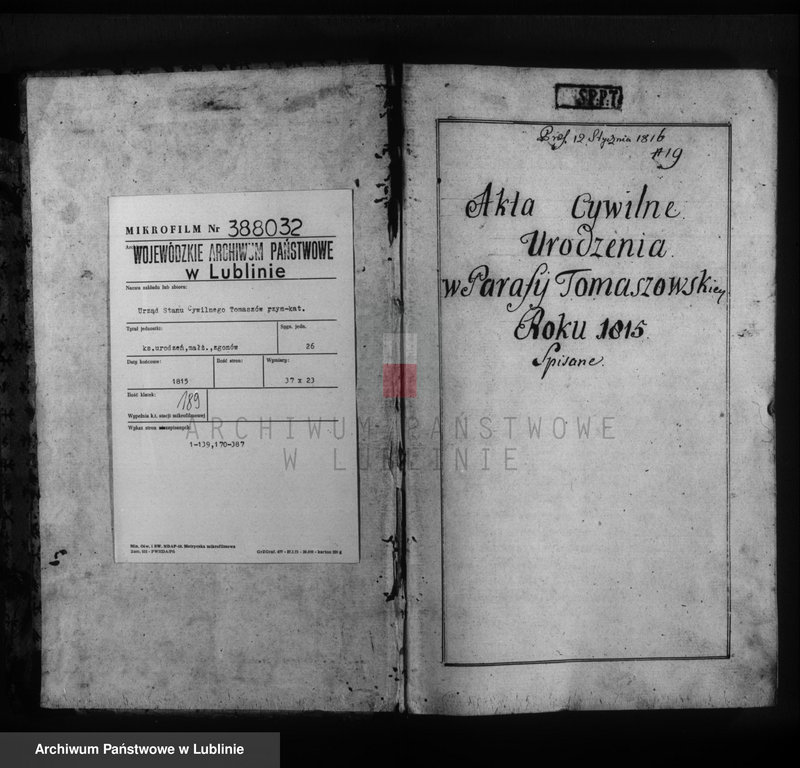 MIKROFILM Nr 388032
WOJEWÓDZKIE ARCHIWUM PAŃSTWOWE
w Lublinie
Nazwa zakładu lub zbioru:
Urząd Stanu Cywilnego Tomaszów rzym-kat.
Tytuł jednostki:
Sygn. jedn.
ks.urodzeń,małż.,zgonów
26
Daty końcowe:
Ilość stron:
Wymiary:
1815
37 x 23
Ilość klatek:
189
Wypełnia k.t. stacji mikrofilmowej
Wykaz stron
1-139,170-387
S.P.P.T.
12 Stycznia 1816
#19
Akta Cywilne
Urodzenia
w Parafij Tomaszowskiey
Roku 1815
Spisane.
ARCHIWUM PAŃSTWOWE
W LUBLINIE
Archiwum Państwowe w Lublinie